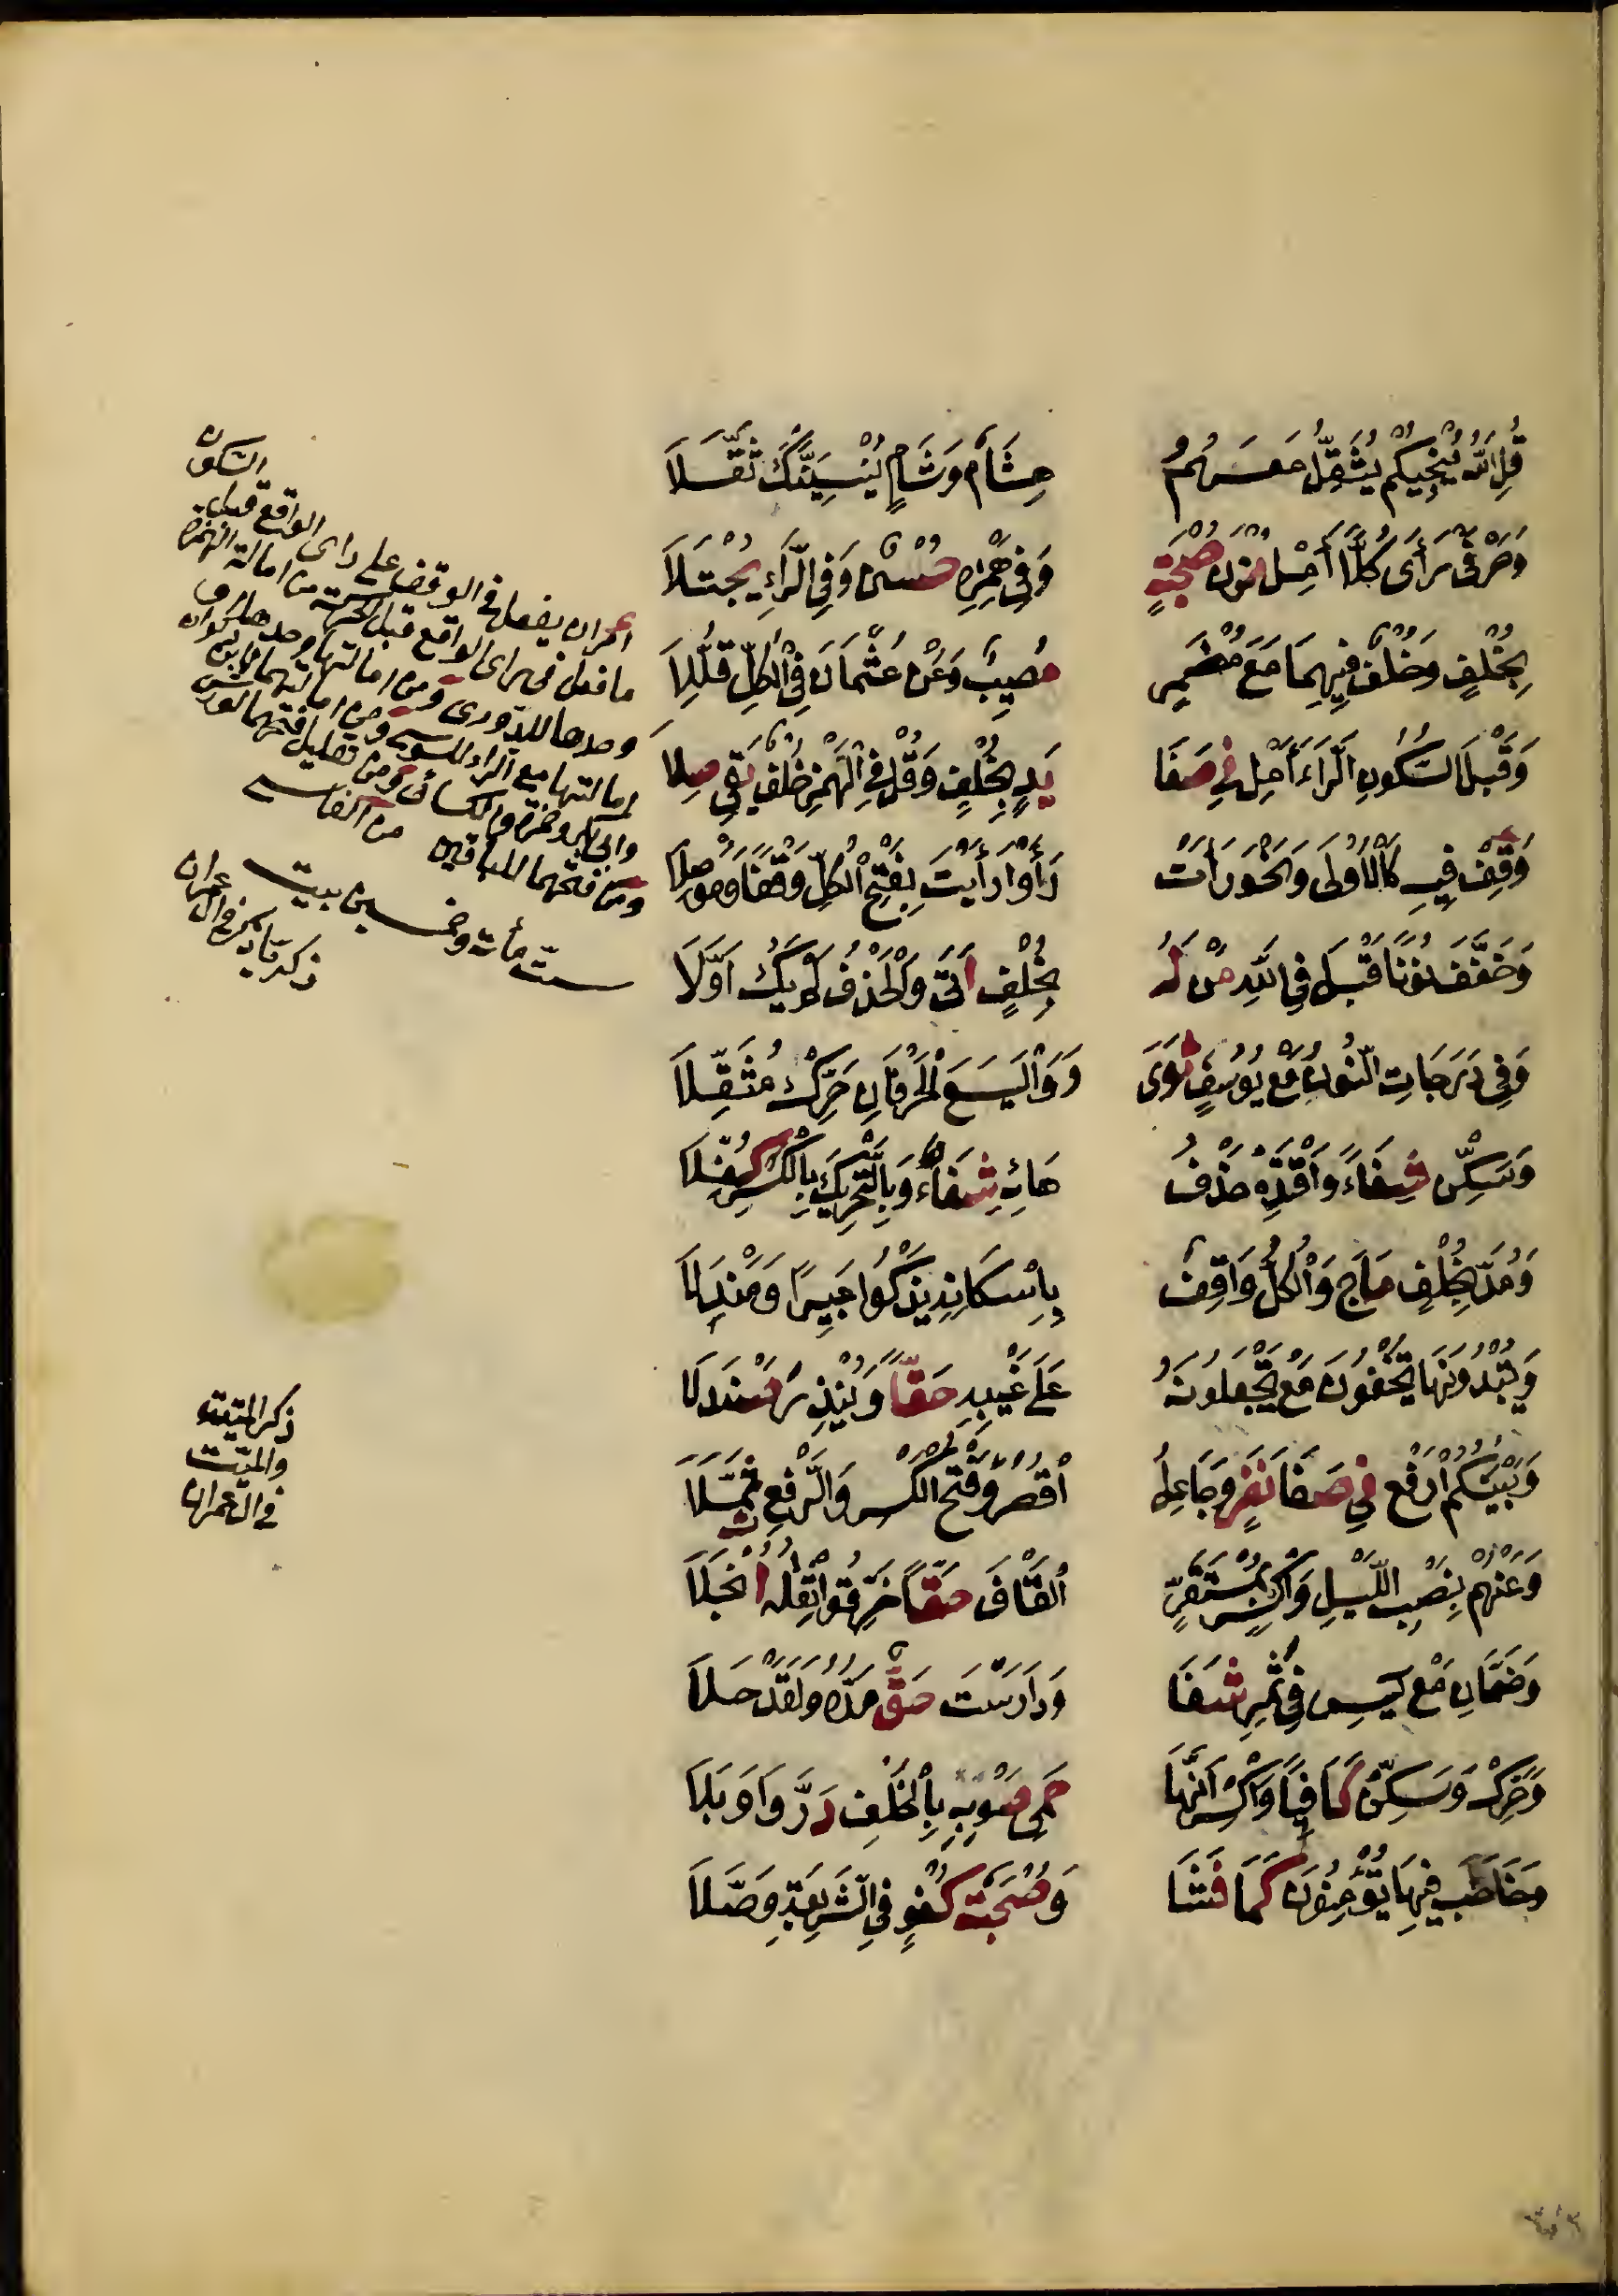 قُلِ اللّٰهُ يُنْجِيكُمْ يُثَقِّلُ مَعَهُمُ هِشَامٌ وَشَامٍ يُنْسِيَنَّكَ ثَقَّلَا
وَحَرْفَيْ رَأَى كُلًّا أَمِلْ مُزْنَ صُحْبَةٍ وَفِي هَمْزِهِ حُسْنٌ وَفِي الرَّاءِ يُجْتَلَا
بِخُلْفٍ وَخُلْفٌ فِيهِمَا مَعَ مُضْمَرٍ مُصِيبٌ وَعَنْ عُثْمَانَ فِي الْكُلِّ قَلِّلَا
وَقَبْلَ السُّكُونِ الرَّاءَ أَمِلْ فِي صَفَا يَدٍ بِخُلْفٍ وَقُلْ فِي الْهَمْزِ خُلْفٌ يَقِي صِلَا
وَقِفْ فِيهِ كَالْأُولَى وَنَحْوُ رَأَتْ رَأَوْا رَأَيْتَ بِفَتْحِ الْكُلِّ وَقْفًا وَمَوْصِلَا
وَخَفَّفَ نُونًا قَبْلَ فِي اللّٰهِ مَنْ لَهُ بِخُلْفٍ أَتَى وَالْحَذْفُ لَمْ يَكُ أَوَّلَا
وَفِي دَرَجَاتِ النُّونُ مَعْ يُوسُفٍ ثَوَى وَوَالْيَسَعَ الْحَرْفَانِ حَرِّكْ مُثَقِّلَا
وَسَكِّنْ شِفَاءً وَاقْتَدِهْ حَذْفُ هَائِهِ شِفَاءٌ وَبِالتَّحْرِيكِ بِالْكَسْرِ كُفِّلَا
وَمُدَّ بِخُلْفٍ مَاجَ وَالْكُلُّ وَاقِفٌ بِإِسْكَانِهِ يَذْكُو عَبِيرًا وَمَنْدَلَا
وَيُبْدُونَهَا يُخْفُونَ مَعْ يَجْعَلُونَهُ عَلَى غَيْبِهِ حَقًّا وَيُنْذِرَ صَنْدَلَا
وَبَيْنَكُمُ ارْفَعْ فِي صَفَا نَفَرٍ وَجَاعِلُ اقْصُرْ وَفَتْحُ الْكَسْرِ وَالرَّفْعِ ثُمِّلَا
وَعَنْهُمْ بِنَصْبِ اللَّيْلِ وَاكْسِرْ بِمُسْتَقَرٌّ الْقَافَ حَقًّا خَرَّقُوا ثِقْلُهُ انْجَلَا
وَضَمَّانِ مَعْ يٰسٍ فِي ثَمَرٍ شَفَا وَدَارَسْتَ حَقٌّ مَدُّهُ وَلَقَدْ حَلَا
وَحَرِّكْ وَسَكِّنْ كَافِيًا وَاكْسِرْ أَنَّهَا حِمَى صَوْبِهِ بِالْخُلْفِ دَرَّ وَأَوْبَلَا
وَخَاطَبَ فِيهَا تُؤْمِنُونَ كَمَا فَشَا وَصُحْبَةُ كُفْؤٍ فِي الشَّرِيعَةِ وَصَّلَا
السكون
امران يفعل في الوقف على راى الواقع قبل
ما فعل في راى الواقع قبل الحركة من امالة الهمزة
وحدها للدوري ومن امالتها
امالتها مع الراء للسوسي ومن امالتهما لابن ذكوان
وابي بكر وحمزة والكسائي ومن تقليل فتحهما لورش
ومن فتحهما للباقين من الفاسي
ستمأت وخمسين بيت
ذكر في ال عمران
ذكر الميتة
والميت
في ال عمران